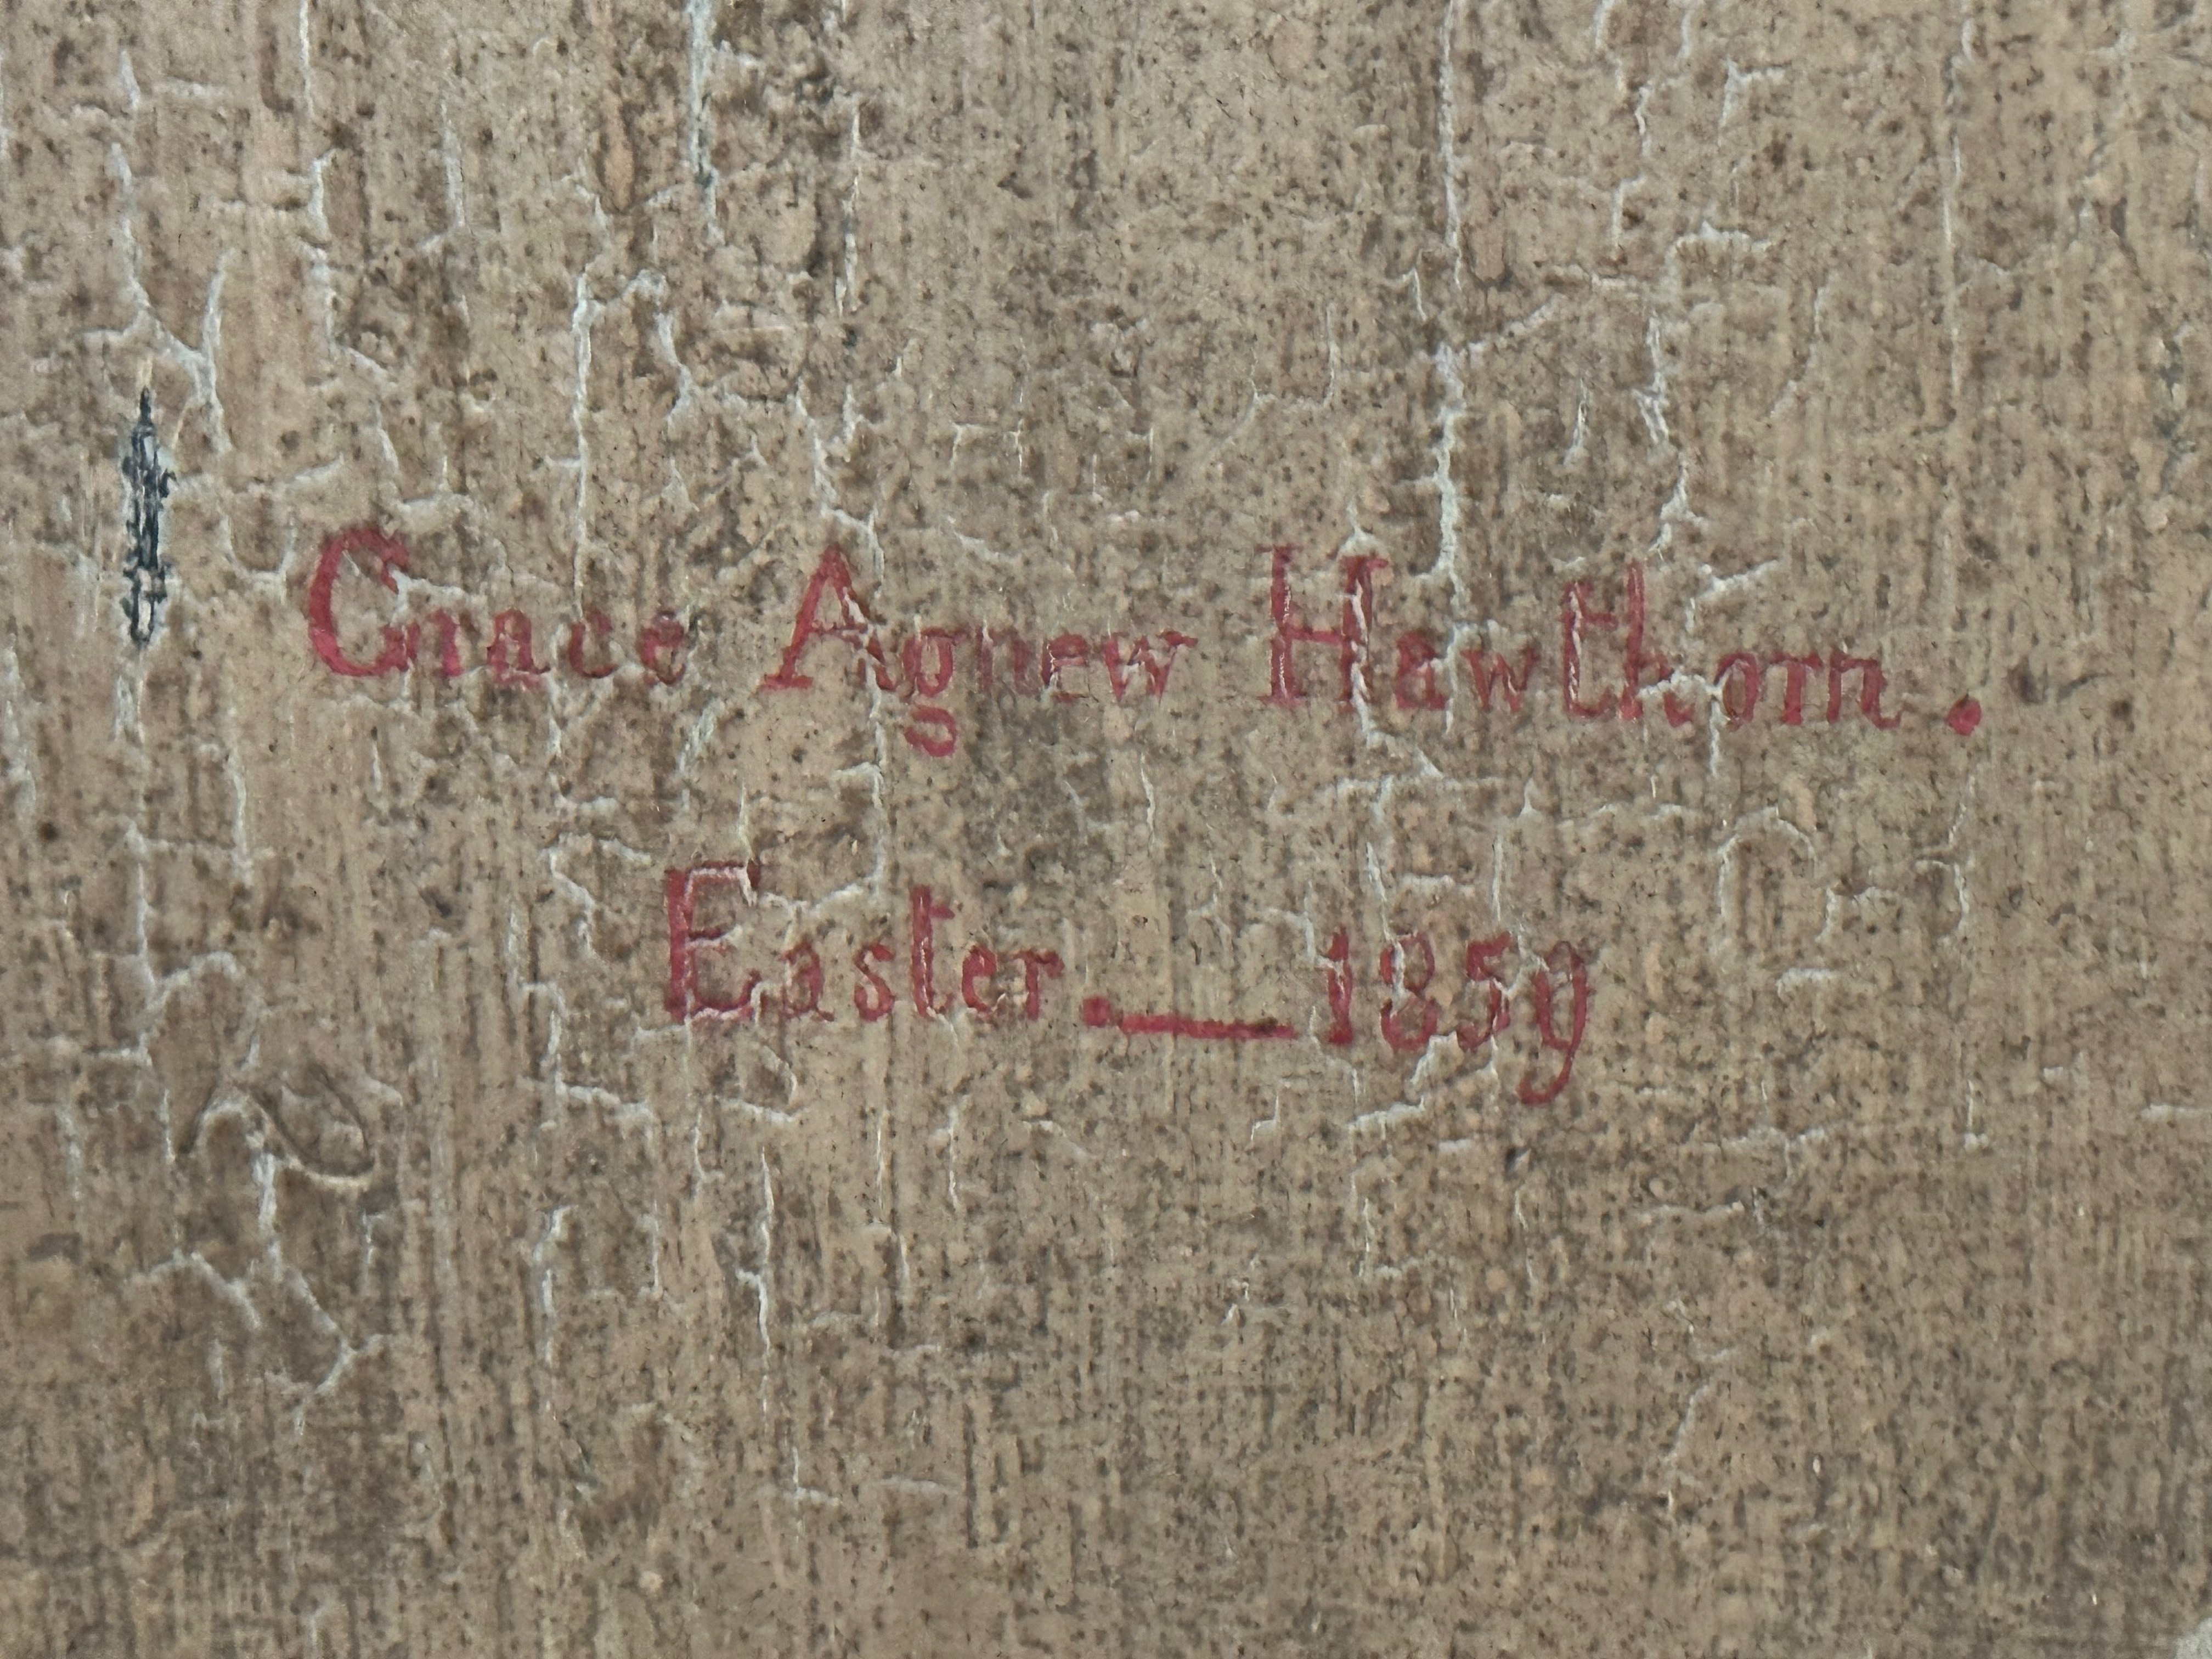 Grace Agnew Hawthorn.
Easter. — 1859